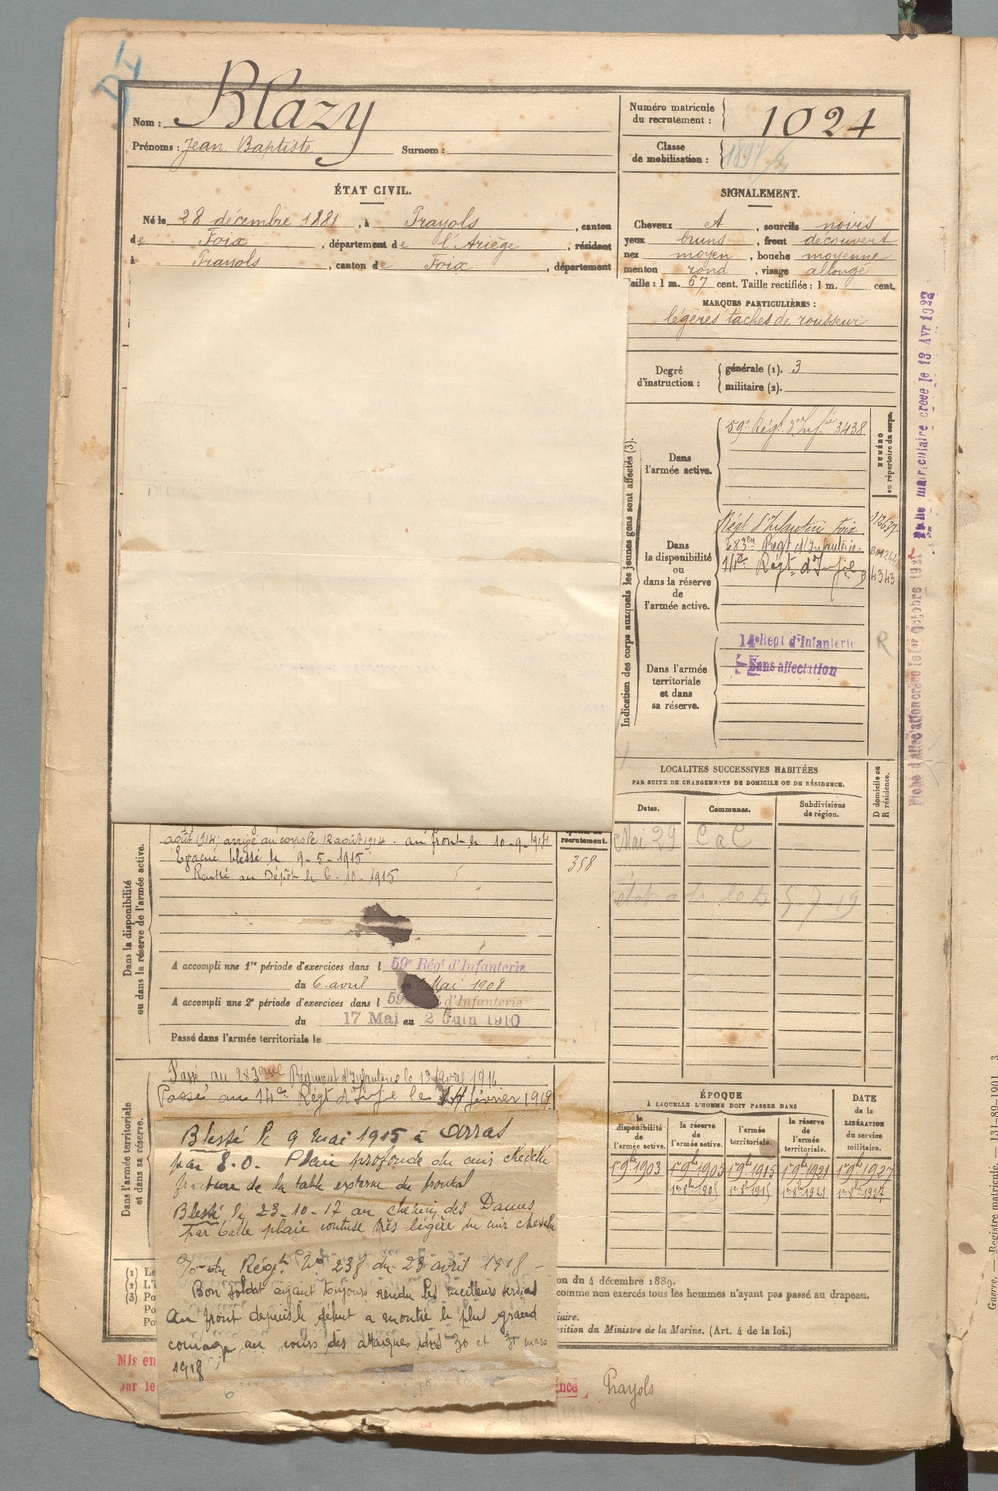 Nom : Blazy
Prénoms : Jean Baptiste Surnom :
ÉTAT CIVIL.
Né le 28 décembre 1881, à Prayols, canton
de Foix, département de l'Ariège, résident
à Prayols, canton de Foix, département
Numéro matricule
du recrutement : 1024
Classe
de mobilisation : 1897
SIGNALEMENT.
Cheveux A, sourcils noirs
yeux bruns, front découvert
nez moyen, bouche moyenne
menton rond, visage allongé
Taille : 1 m. 67 cent. Taille rectifiée : 1 m. cent.
MARQUES PARTICULIÈRES :
légères taches de rousseur
Degré
d'instruction :
générale (1). 3
militaire (2).
Indication des corps auxquels les jeunes gens sont affectés (3).
NUMÉRO
au répertoire du corps.
Dans
l'armée active.
59e Régt d'Infie 3438
Dans
la disponibilité
ou
dans la réserve
de
l'armée active.
Régt d'Infanterie Foix
283e Régt d'Infanterie
14e Régt d'Infie
4343
Dans l'armée
territoriale
et dans
sa réserve.
14e Régt d'Infanterie
Sans affectation
R
Fiche matriculaire créée le 13 Avr 1922
Fiche d'affectation créée le 1er Octobre 1921
LOCALITÉS SUCCESSIVES HABITÉES
PAR SUITE DE CHANGEMENTS DE DOMICILE OU DE RÉSIDENCE.
Dates. Communes. Subdivisions
de région.
D domicile ou
R résidence.
Mai 29 C a C
Dans la disponibilité
ou dans la réserve de l'armée active.
août 1914; arrivé au corps le 12 août 1914. au front le 10-9-1914
Evacué blessé le 9-5-1915
Rentré au Dépôt le 6-10-1915
recrutement.
358
A accompli une 1re période d'exercices dans l 59e Régt d'Infanterie
du 6 avril Mai 1908
A accompli une 2e période d'exercices dans l 59 d'Infanterie
du 17 Mai au 2 Juin 1910
Passé dans l'armée territoriale le
Dans l'armée territoriale
et dans sa réserve.
Passé au 283ème Régiment d'Infanterie le 1916
Passé au 14e Régt d'Infie le février 1918
Blessé le 9 mai 1915 à Arras
par E.O. Plaie profonde du cuir chevelu
fracture de la table externe du frontal
Blessé le 23-10-17 au chemin des Dames
par balle plaie contuse très légère du cuir chevelu
O du Régt No 238 du 23 avril 1918 -
Bon soldat ayant toujours rendu les meilleurs services
Au front depuis le début a montré le plus grand
courage au cours des attaques des 30 et 31 mars
1918
ÉPOQUE
À LAQUELLE L'HOMME DOIT PASSER DANS
la
disponibilité
de l'armée active.
la réserve
de
l'armée active.
l'armée
territoriale.
la réserve
de
l'armée
territoriale.
DATE
de la
LIBÉRATION
du service
militaire.
1903 1905 1915 1921 1927
1905 1915 1921 1927
(1) Le
(2) L'i
(3) Po
Po
Po
on du 4 décembre 1889.
comme non exercés tous les hommes n'ayant pas passé au drapeau.
iaire.
osition du Ministre de la Marine. (Art. 4 de la loi.)
Mis en
par le
Prayols
Guerre. — Registre matricule. — 131-89-1901. 3